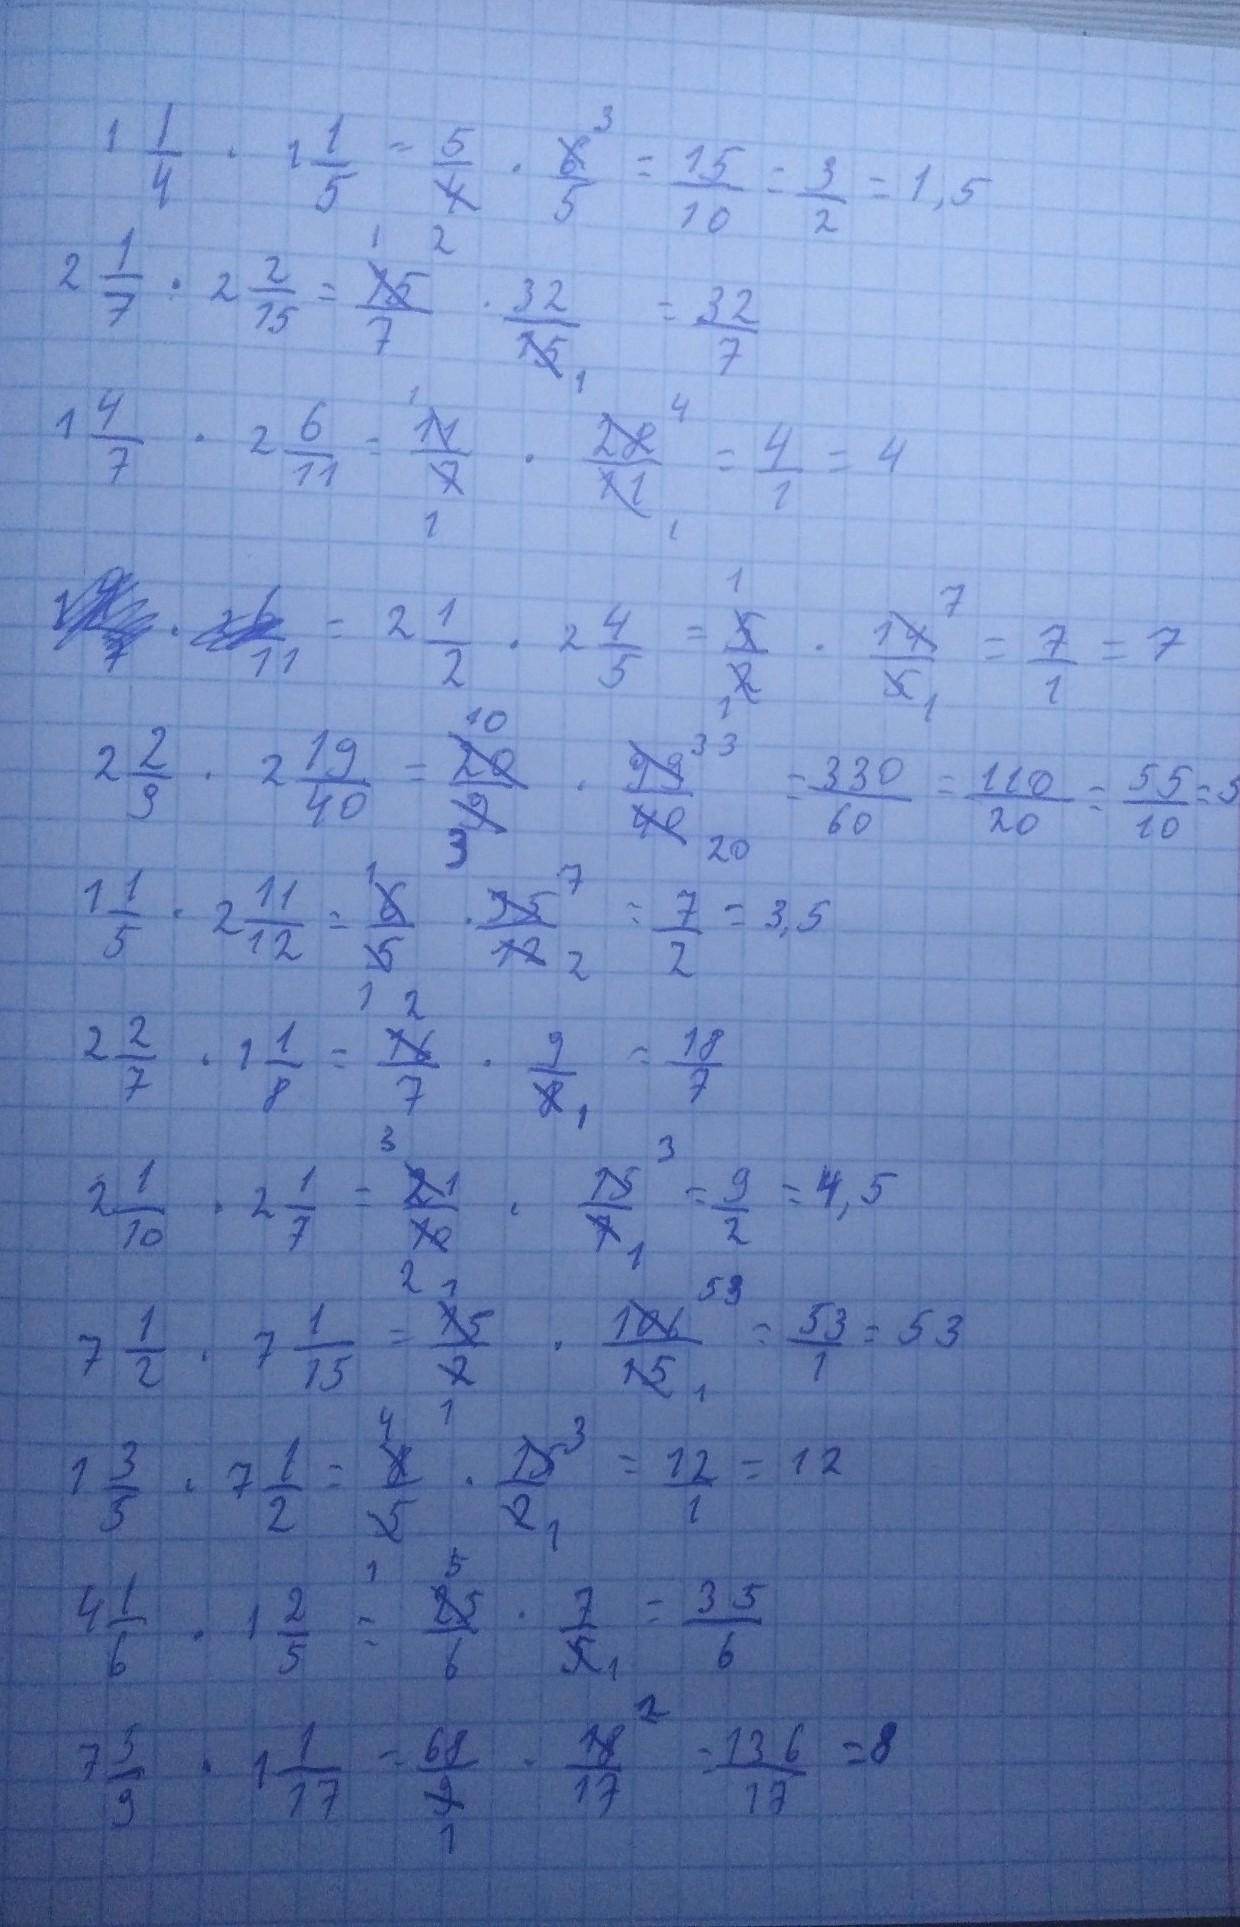 1 1/4 · 1 1/5 = 5/4 2 · 6/5 3 = 15/10 = 3/2 = 1,5
2 1/7 · 2 2/15 = 15/7 1 · 32/15 1 = 32/7
1 4/7 · 2 6/11 = 11/7 1 1 · 28/11 4 1 = 4/1 = 4
= 2 1/2 · 2 4/5 = 5/2 1 1 · 14/5 7 1 = 7/1 = 7
2 2/9 · 2 19/40 = 20/9 10 3 · 99/40 33 20 = 330/60 = 110/20 = 55/10 = 5
1 1/5 · 2 11/12 = 6/5 1 1 · 35/12 7 2 = 7/2 = 3,5
2 2/7 · 1 1/8 = 16/7 2 · 9/8 1 = 18/7
2 1/10 · 2 1/7 = 21/10 3 2 · 15/7 3 1 = 9/2 = 4,5
7 1/2 · 7 1/15 = 15/2 1 1 · 106/15 53 1 = 53/1 = 53
1 3/5 · 7 1/2 = 8/5 4 1 · 15/2 3 1 = 12/1 = 12
4 1/6 · 1 2/5 = 25/6 5 · 7/5 1 = 35/6
7 5/9 · 1 1/17 = 68/9 1 · 18/17 2 = 136/17 = 8